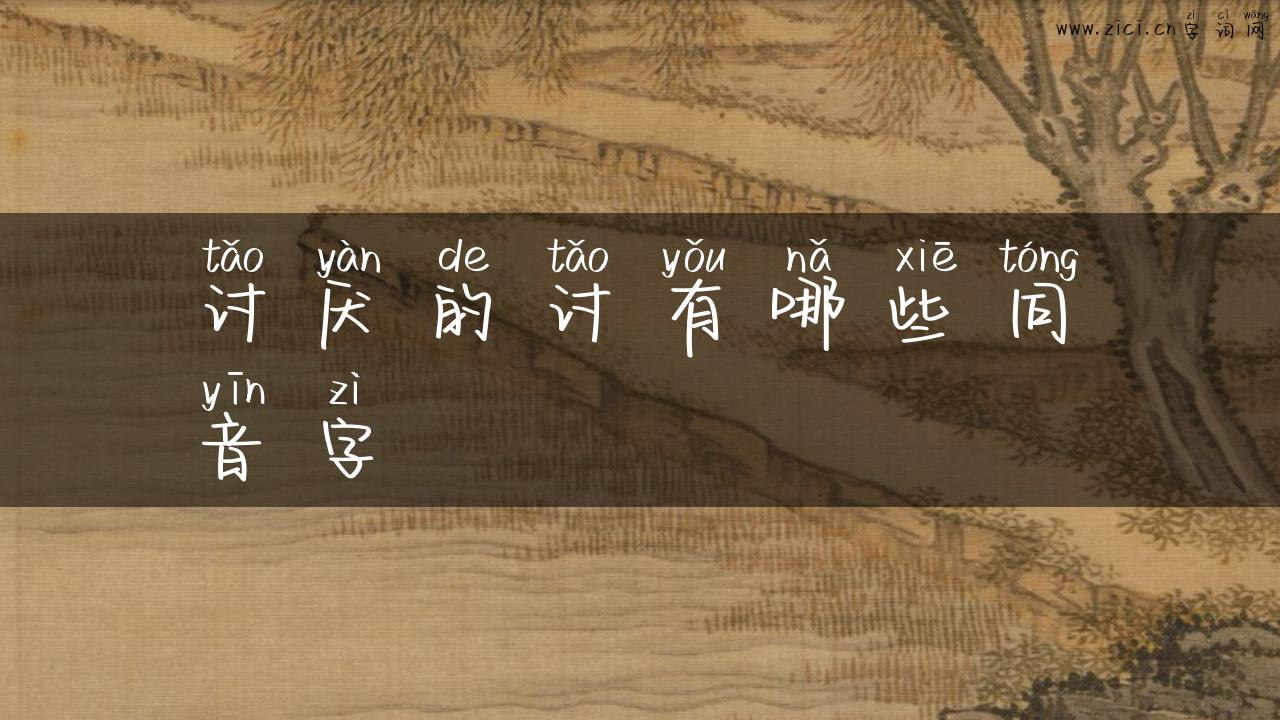 zì cí wǎng
www.zici.cn 字 词 网
tǎo yàn de tǎo yǒu nǎ xiē tóng
讨 厌 的 讨 有 哪 些 同
yīn zì
音 字